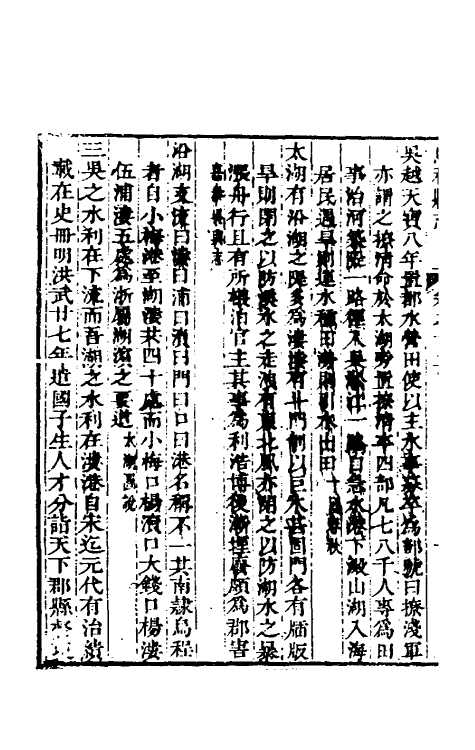 吳越天寶八年置都水營田使以主水事募卒為部號曰撩淺軍
亦謂之撩清命於太湖旁置撩清卒四部凡七八千人專為田
事治河築隄一路徑入吳淞江一路自急水港下澱山湖入海
居民遇旱則運水種田澇則引水出田十國春秋
太湖有沿湖之隄多為漊漊有斗門制以巨木甚固門各有牐版
旱則閉之以防溪水之走洩有東北風亦閉之以防湖水之暴
漲舟行且有所檥泊官主其事為利浩博後漸堙廢頗為郡害
嘉泰吳興志
沿湖支流曰漊曰浦曰瀆曰門曰口曰港名稱不一其南隸烏程
者自小梅港至湖漊共四十處而小梅口楊瀆口大錢口楊漊
伍浦漊五處為浙屬湖濱之要道太湖備說
三吳之水利在下流而吾湖之水利在漊港自宋迄元代有治績
載在史冊明洪武廿七年遣國子生人才分詣天下郡縣